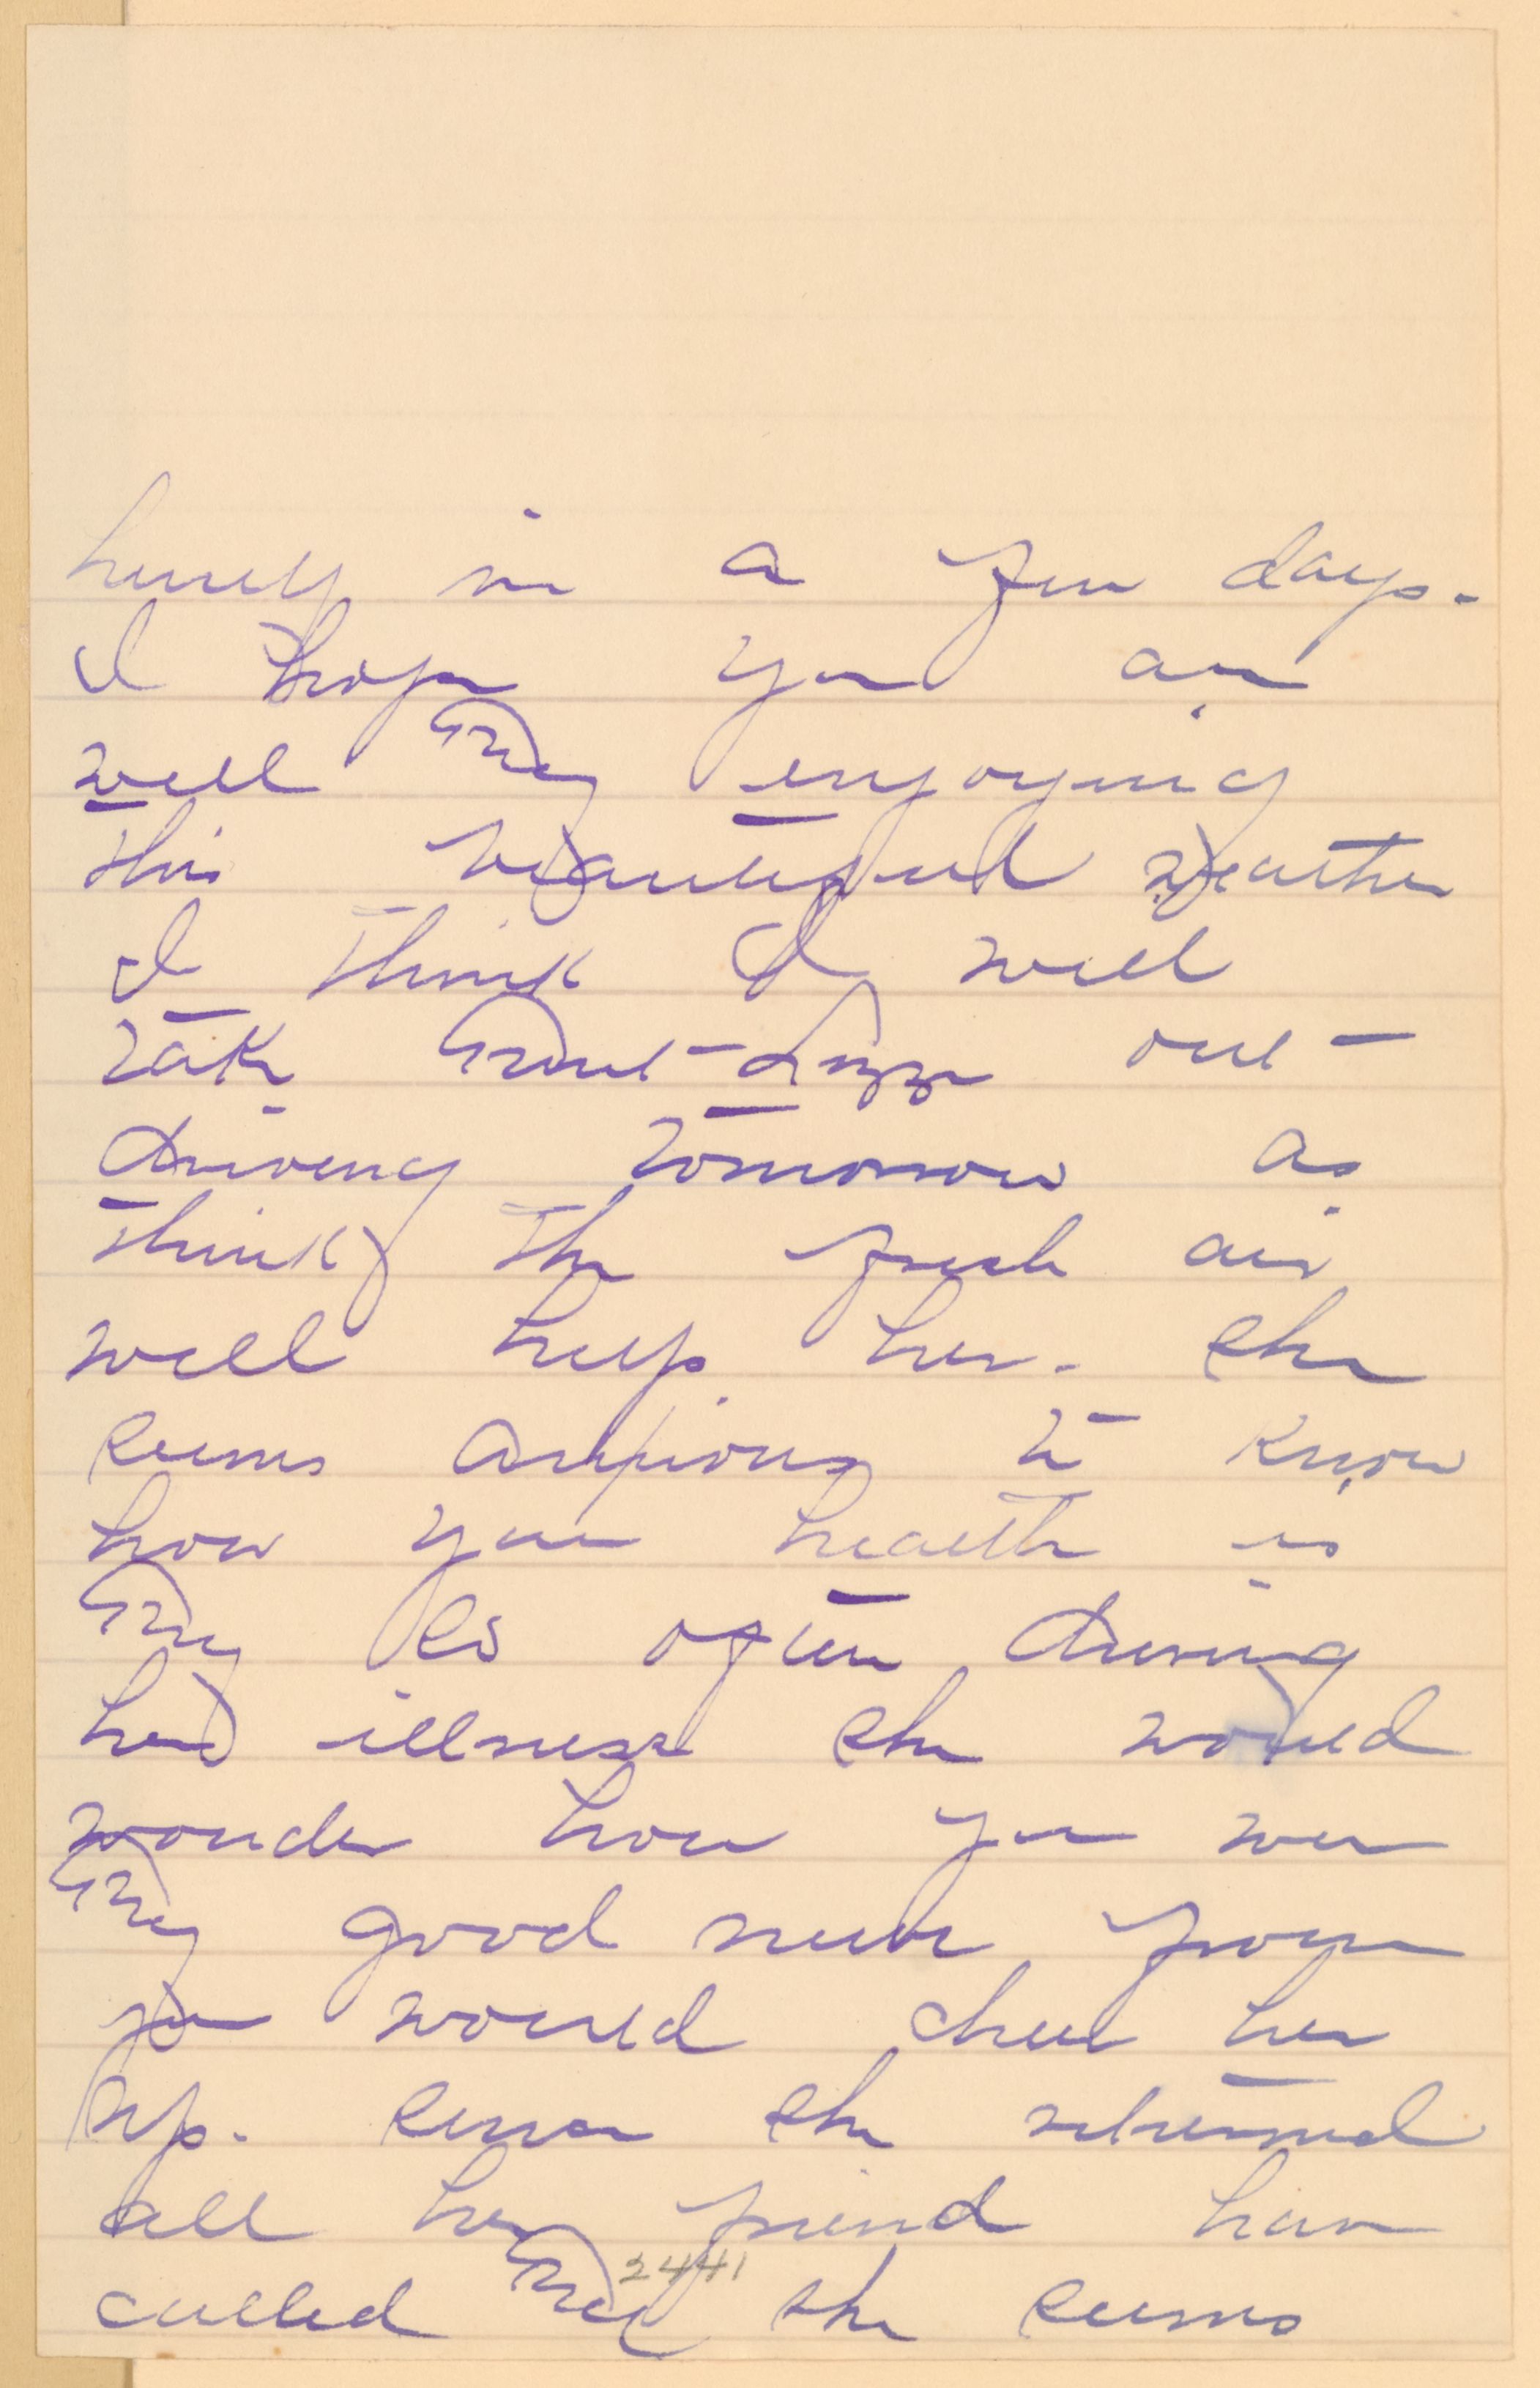 herself in a few days.
I hope you are
well and enjoying
this beautiful weather
I think I will
take Aunt Lizzie out
driving tomorrow as
think the fresh air
will help her. she
seems anxious to know
how your health is
and so often during
her illness she would
wonder how you were
and good news from
you would cheer her
up. since she returned
all her friend have
2441
called and she seems